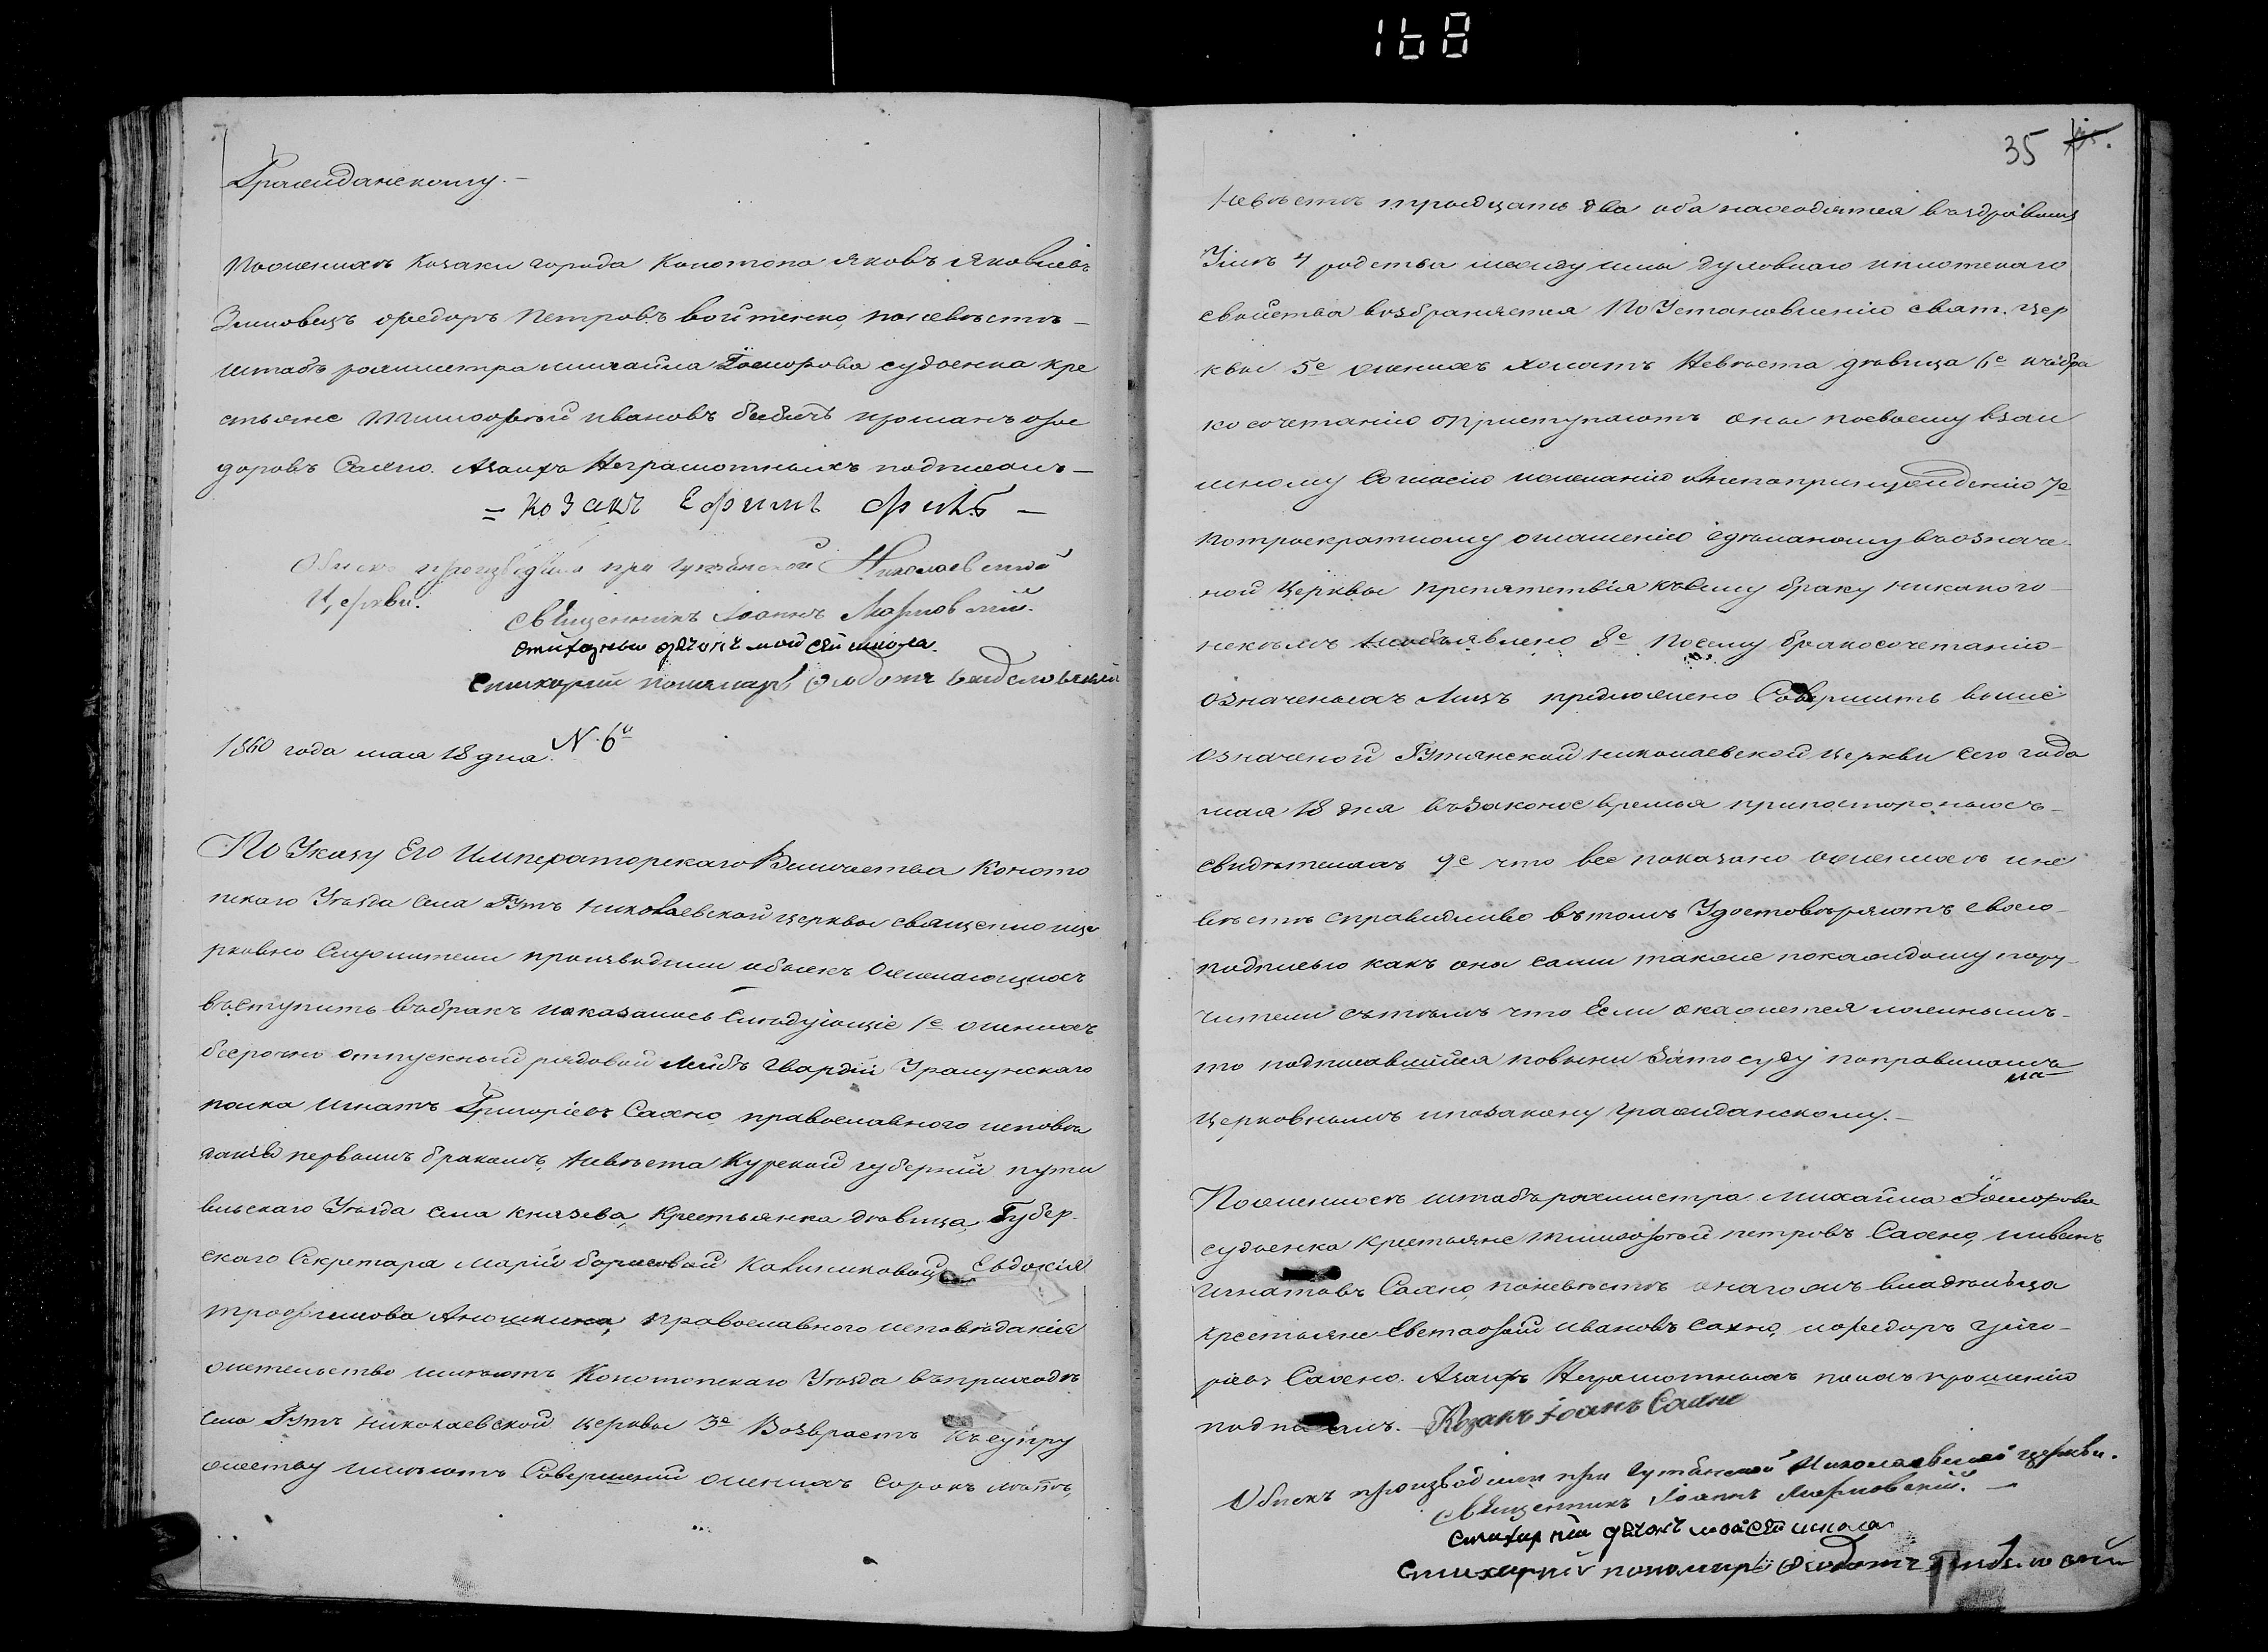 168
Гражданскому. –
По женихѣ Козаки города Конотопа Яковъ Яковлевъ
Зимовецъ Федоръ Петровъ Войтенко, по невѣстѣ –
штабъ ротмистра Михаила Гоморова судьенка кре
стьяне Тимофей Ивановъ Романъ Фео
доровъ Сахно. А за ихъ Неграмотныхъ подписалъ –
= Козакъ Ефимъ
Обискъ производили при Гутянской Николаевской
Церкви.
Священникъ Іоаннъ
Стихарный дячокъ Мойсей Школа
Стихарний пономарь Федотъ
1860 года мая 18 дня. N. 6й
По Указу Его Императорскаго Величества Коното
пскаго Уѣзда села Гутъ Николаевской церквы священно це
рковно Служители производили обыскъ О желающихъ
вступить въ бракъ и оказалось слѣдующіе 1е женихъ
безсрочно отпускный рядовой Лейбъ Гвардіи Уланскаго
полка Игнатъ Григоріевъ Сахно, православнаго исповѣ
данія первымъ бракомъ, Невѣста Курской губерніи пути
вльскаго Уѣзда села Князева, Крестьянка дѣвица, Губер
скаго Секретаря Маріи Борисовой Евдокія
Трофимова Аношкина, православнаго исповѣданія
жительство имѣютъ Конотопскаго Уѣзда въ приходѣ
села Гутъ Николаевской церквы 3е Возврастъ къ супру
жеству имѣютъ Совершеній женихъ сорокъ лѣтъ,
35
Невѣста тридцать два оба находятся въ здравомъ
Умѣ 4 родства между ими духовнаго и плотскаго
свойства возбраняется По Установленію свят. цер
квы 5е женихъ холостъ Невѣста дѣвица 6е къ бра
ко сочетанію приступаютъ они по своему взаи
мному Согласію и желанію а не по принужденію 7е
По троекратному оглашенію сдѣланому въ означе
ной Церквы препятствія къ сему браку никакого –
некѣмъ необъявлено 8е По сему бракосочетанію –
означеныхъ Лицъ предположено Совершить въ выше
означеной Гутянской Николаевской церкви сего года
мая 18 дня въ законое время при постороныхъ –
свидѣтеляхъ 9е что все показано о женихѣ и не
вѣстѣ справидливо въ томъ Удостовѣряютъ своею –
подписью какъ они сами такъ и по каждому пору –
чители съ тѣмъ что Если окажется ложнымъ –
то подписавшійся повыни за то суду по правиламъ
Церковнымъ и по закону гражданскому. –
По женихѣ штабъ ротмистра Михаила Гоморова
судьенка Крестьяне Тимофей Петровъ Сахно, и Иванъ
Игнатовъ Сахно, по невѣстѣ онаго жъ владѣльца
крестьяне Евстафій Ивановъ Сахно, и Федоръ Григо –
ріевъ Сахно. А за ихъ Неграмотныхъ по ихъ прошенію
подписалъ. – Козакъ Іоанъ Сахно
Обискъ производили при Гутянской Николаевской церкви.
Священникъ Іоаннъ
Стихарный дячокъ Мойсей Школа
Стихарній пономарь Федотъ